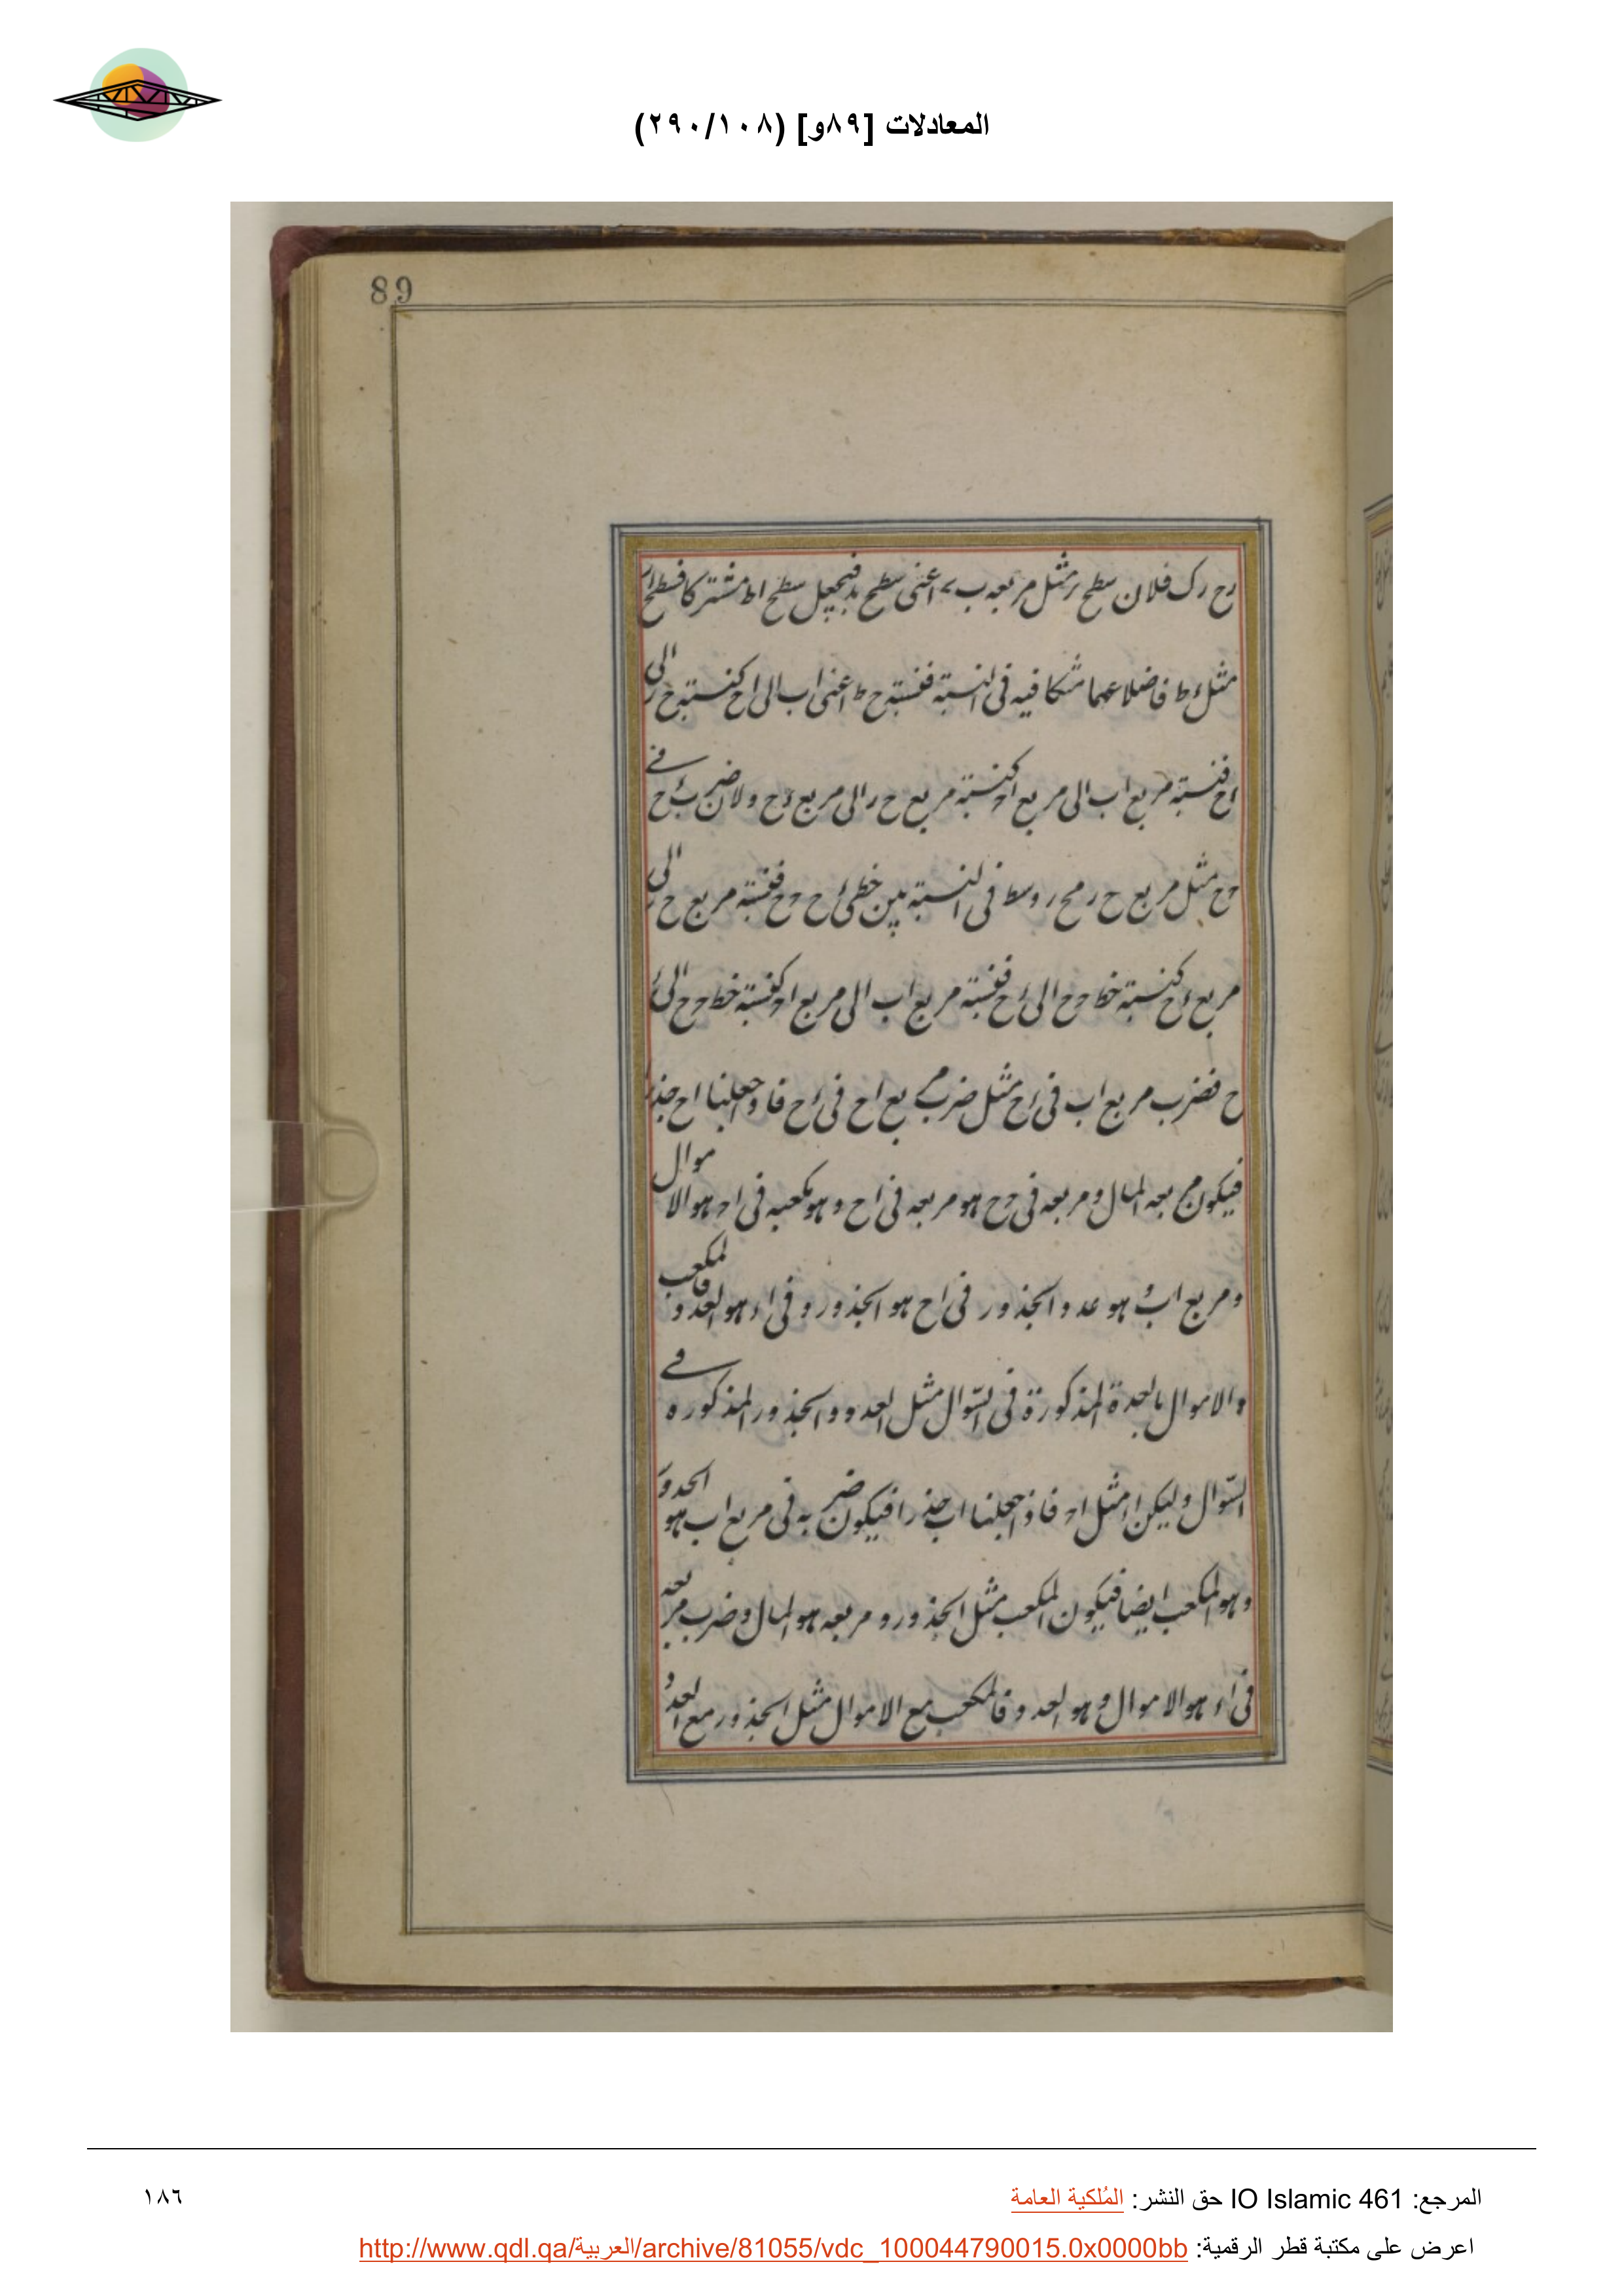 المعادلات [٨٩و] (٢٩٠/١٠٨)
89
ح ر ك فلان سطح ر مثل مربعه ب ء اعنى سطح فيجعل سطح اط مشتركا فسطح
مثل ط فاضلاعهما متكافيه فى النسبة فنسبة ح ط اعنى اب الى اح كنسبة ح ر الى
ءح فنسبة مربع اب الى مربع اح كنسبة مربع ح ر الى مربع ءح ولان ضرب ءح فى
حح مثل مربع ح ر مح ر وسط فى النسبة بين خطى ءح حح فنسبة مربع ح ر الى
مربع ءح كنسبة خط حح الى ءح فنسبة مربع اب الى مربع اح كنسبة خط حح الى ء
ح فضرب مربع اب فى ءح مثل ضرب مربع اح فى ءح فاذ جعلنا اح جذرا
فيكون مربعه المال ومربعه فى حح هو مربعه فى اح وهو مكعبه فى اح هو الاموال
ومربع اب هو عدد الجذور فى اح هو الجذور وفى اء هو العدد فالمكعب
والاموال بالعدة المذكورة فى السوال مثل العدد والجذور المذكوره فى
السوال وليكن اء مثل اح فاذ جعلنا اب جذرا فيكون ضربه فى مربع اب هو الجذور
وهو المكعب ايضا فيكون المكعب مثل الجذور ومربعه هو المال وضرب مربعه
فى اء هو الاموال وهو العدد فالمكعب مع الاموال مثل الجذور مع العدد
المرجع: IO Islamic 461 حق النشر: المُلكية العامة
١٨٦
اعرض على مكتبة قطر الرقمية: http://www.qdl.qa/العربية/archive/81055/vdc_100044790015.0x0000bb